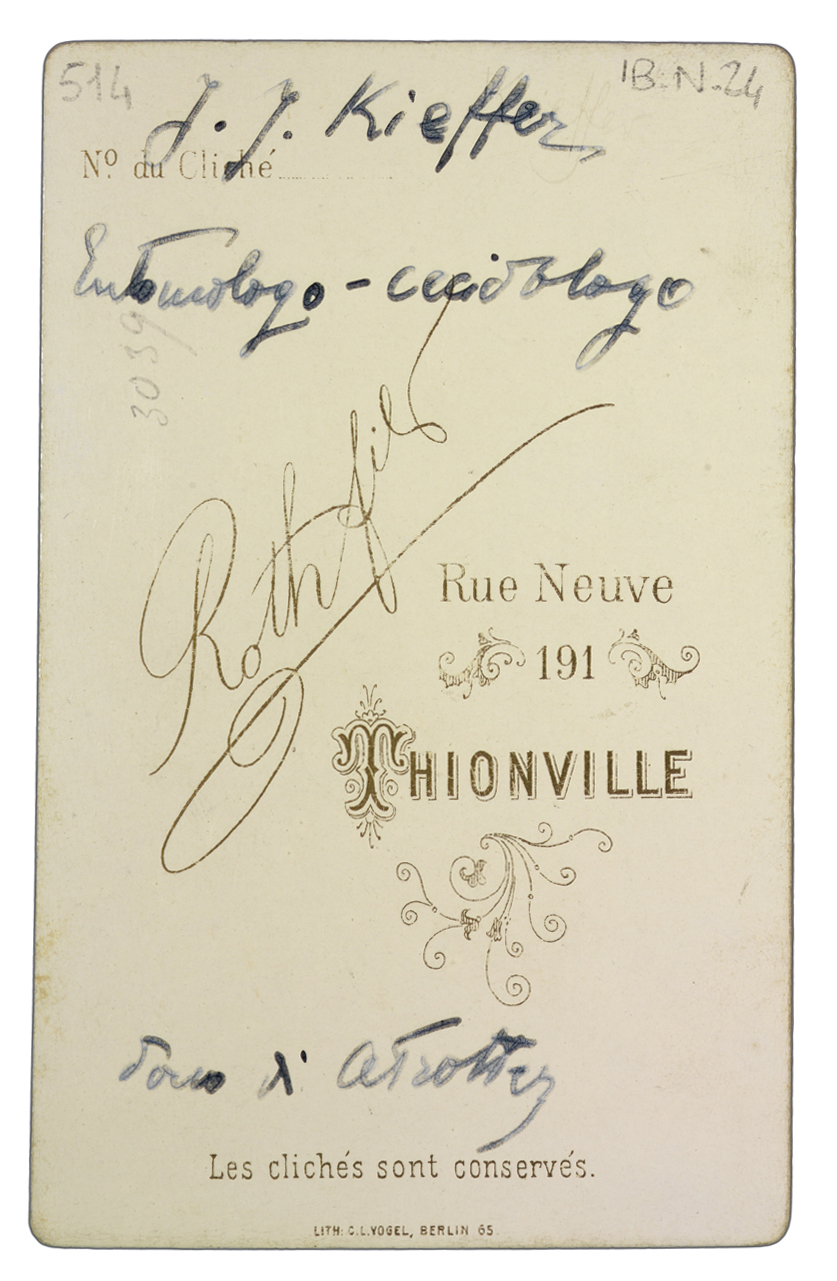 514
IB.N.24
J. J. Kieffer
Nº du Cliché
Entomologo - cecidologo
3039
Roth fils
Rue Neuve
191
THIONVILLE
dono di A Trotter
Les clichés sont conservés.
LITH: C.L.VOGEL, BERLIN 65.